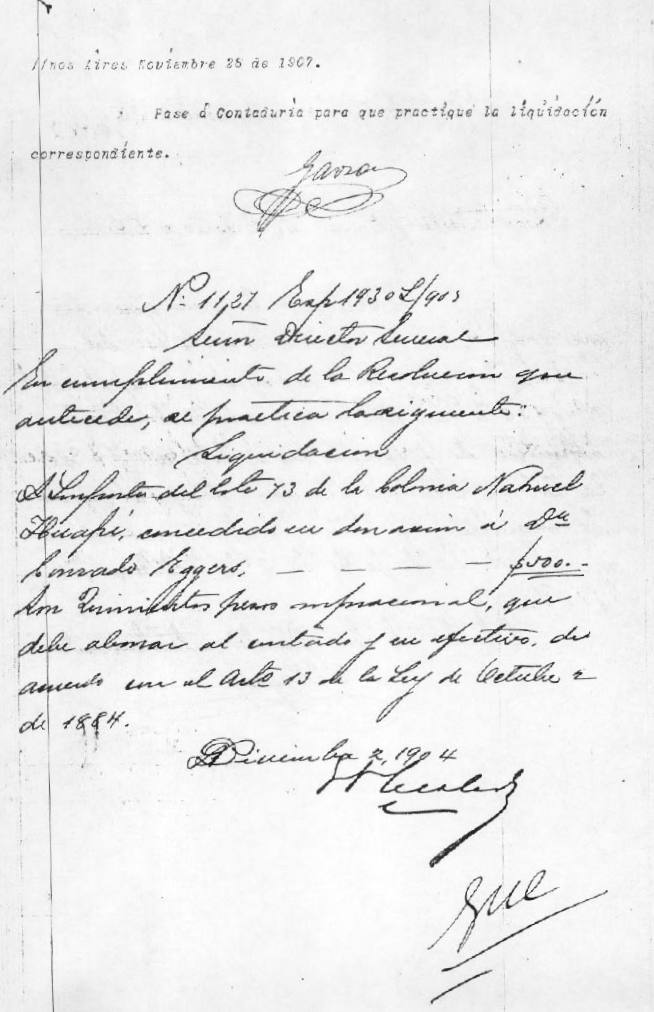 nos Aires Noviembre 28 de 1907.
Pase á Contaduria para que practique la liquidación
correspondiente.
Nº 1127 Exp 1930 L/903
Señor Director General
En cumplimiento de la Resolucion que
antecede, se practica la siguiente:
Liquidacion
Importe del lote 73 de la Colonia Nahuel
Huapí, concedido en donacion á Dn
Conrado Eggers, — — — — $500.-
Son Quinientos pesos m/nacional, que
debe abonar al contado y en efectivo, de
acuerdo con el Artº 13 de la Ley de Octubre 2
de 1884.
Diciembre 2, 1904